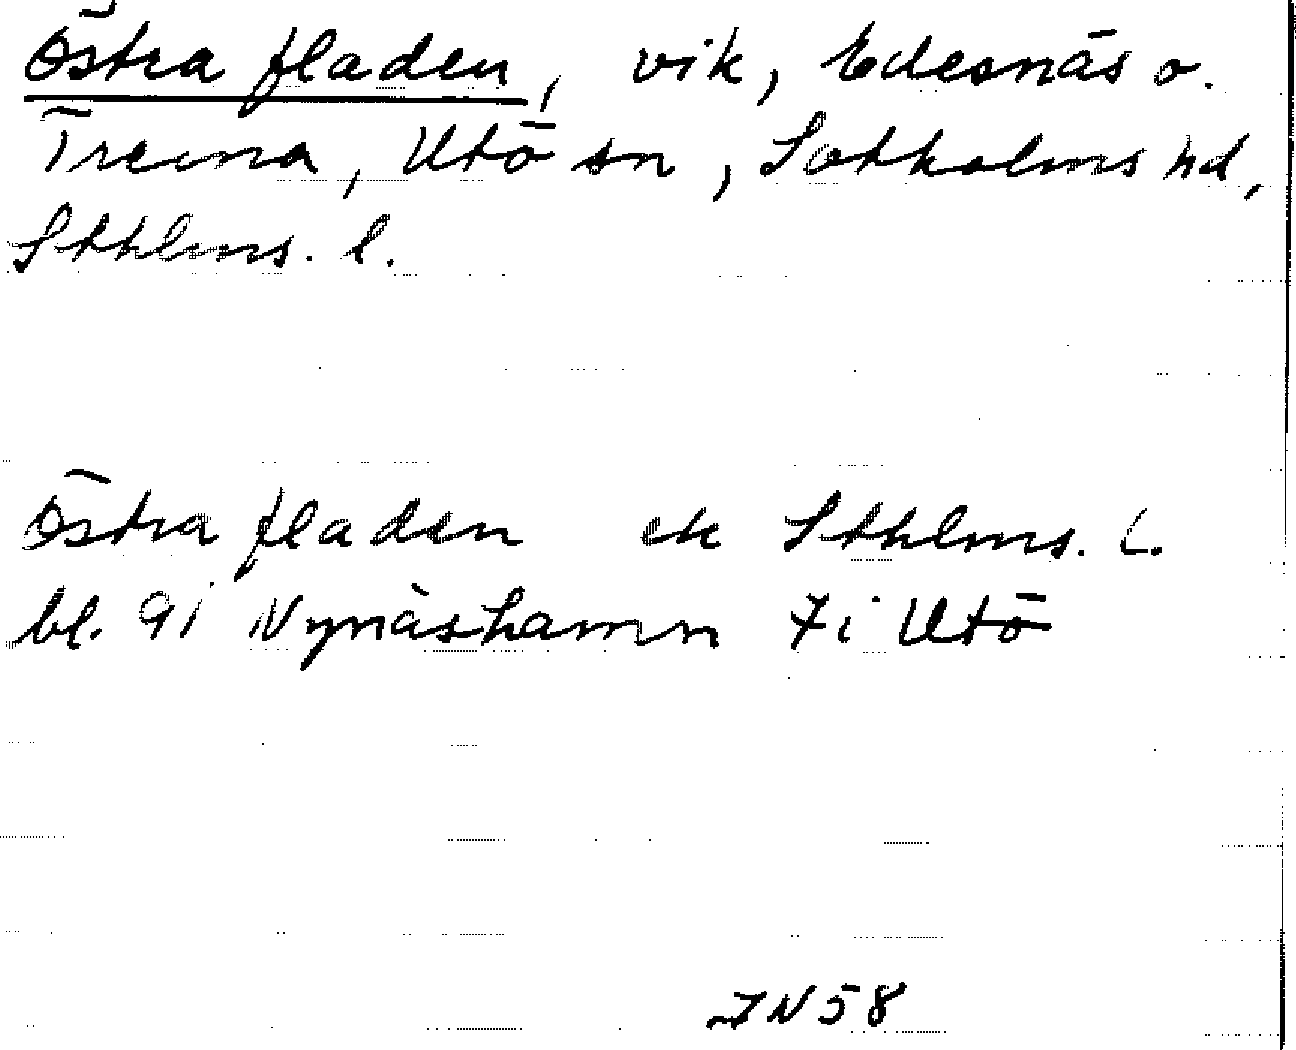 Östra fladen, vik, Edesnäs o.
Träma, Utö sn, Sotholms hd,
Sthlms. l.
Östra fladen ek Sthlms. l.
bl. 91 Nynäshamn 7i Utö
IN58